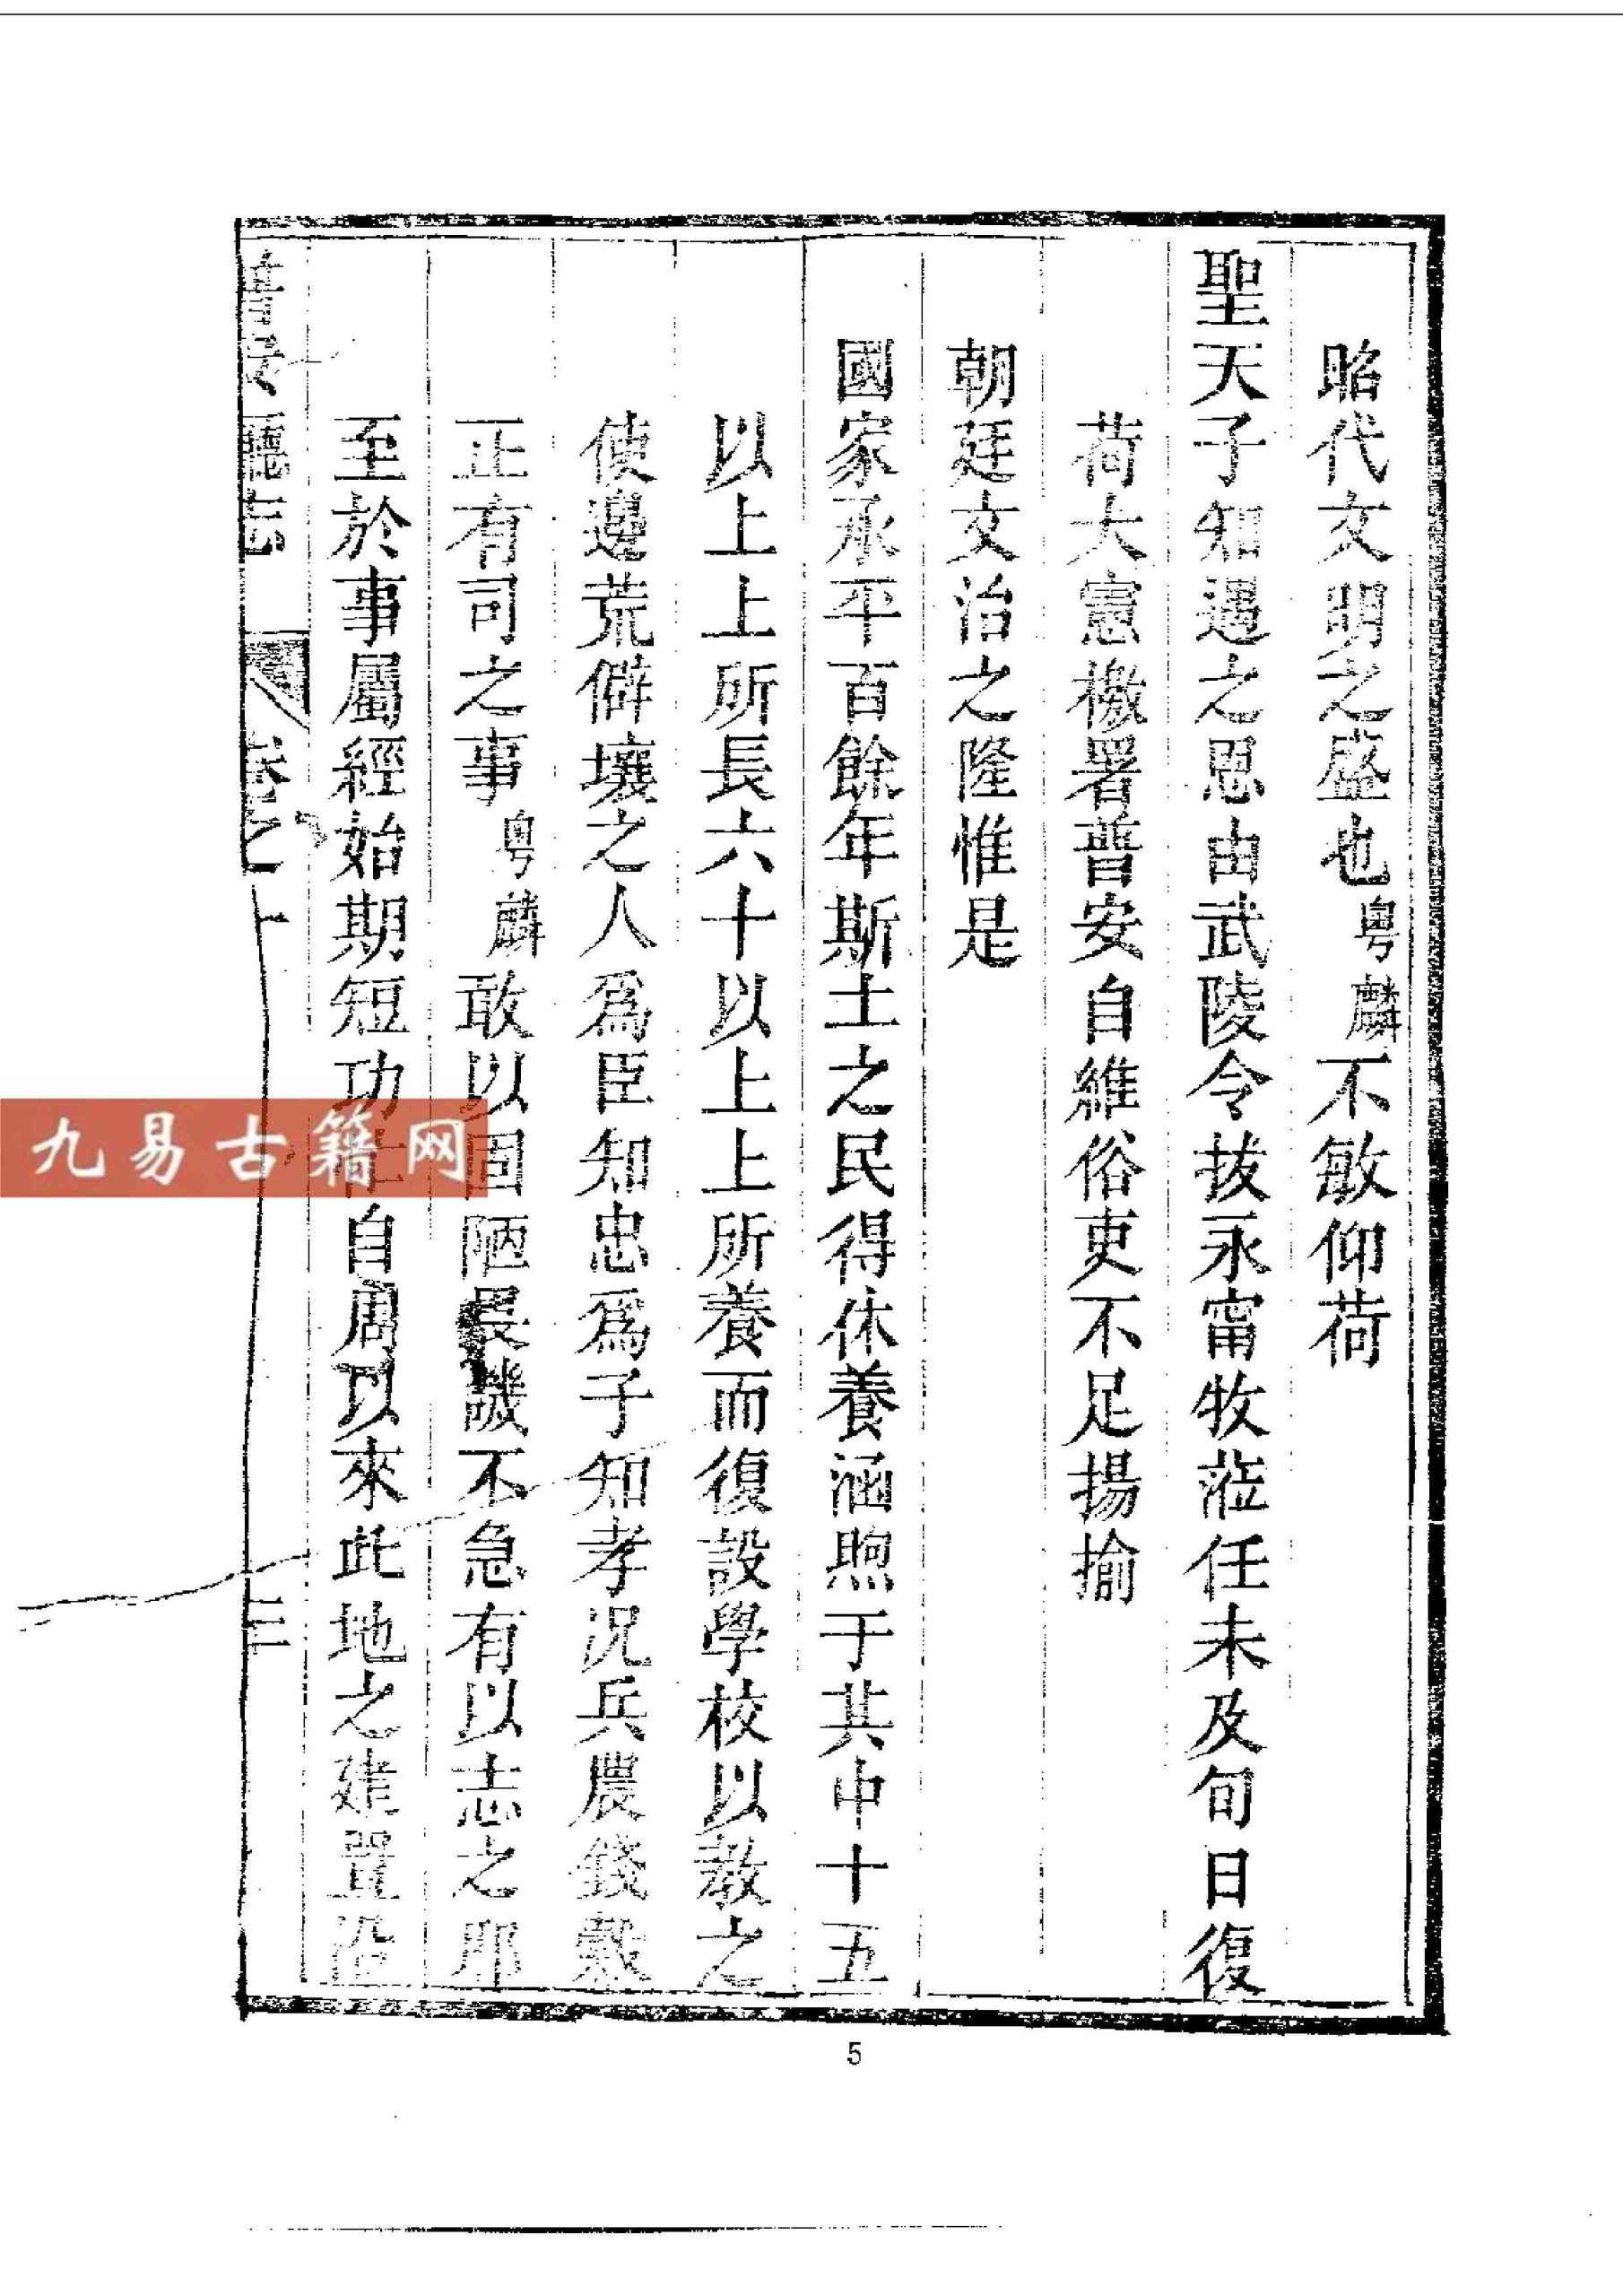 昭代文明之盛也粵麟不敏仰荷
聖天子知遇之恩由武陵令拔永甯牧蒞任未及旬日復
荷大憲檄署普安自維俗吏不足揚揄
朝廷文治之隆惟是
國家承平百餘年斯土之民得休養涵煦于其中十五
以上上所長六十以上上所養而復設學校以教之
使邊荒僻壤之人爲臣知忠爲子知孝況兵農錢穀
正有司之事粵麟敢以固陋畏譏不急有以志之耶
至於事屬經始期短功自周以來此地之建置沿
普安廳志 卷之 三
九易古籍网
5